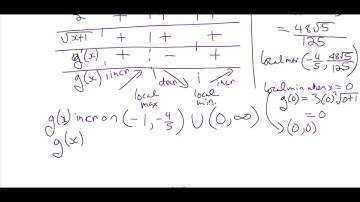 2 + + +
√x+1 + + +
g'(x) + - +
g(x) incr down incr
local max local min.
g(x) incr on (-1, -4/5) ∪ (0, ∞)
g(x)
= 48√5/125
local max (-4/5, 48√5/125)
local min when x = 0
g(0) = 3(0)²√0+1
= 0
(0,0)